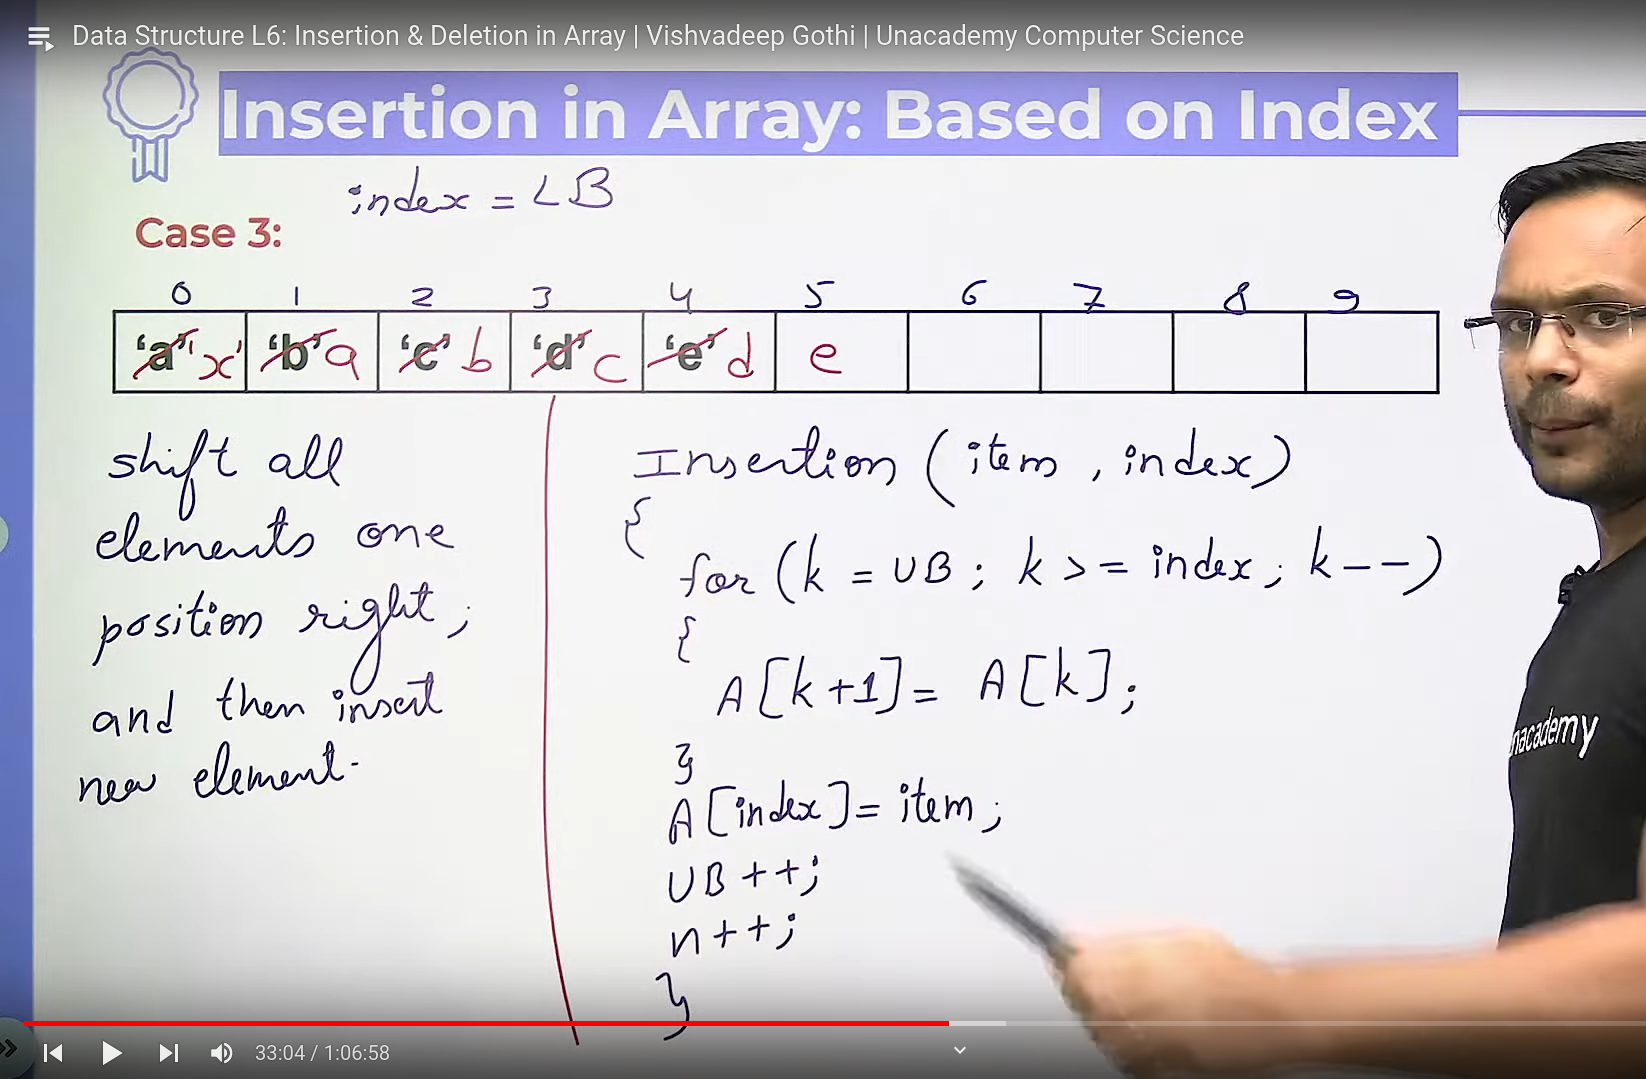 Data Structure L6: Insertion & Deletion in Array | Vishvadeep Gothi | Unacademy Computer Science
Insertion in Array: Based on Index
index = LB
Case 3:
0 1 2 3 4 5 6 7 8 9
'a' 'x' 'b' a 'c' b 'd' c 'e' d e
shift all
elements one
position right;
and then insert
new element.
Insertion (item, index)
{
for (k = UB; k >= index; k--)
{
A[k+1] = A[k];
}
A[index] = item;
UB++;
n++;
}
nacademy
33:04 / 1:06:58